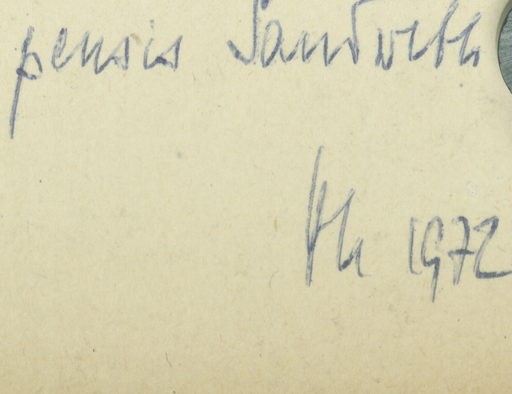 pensis Sandwith
1972